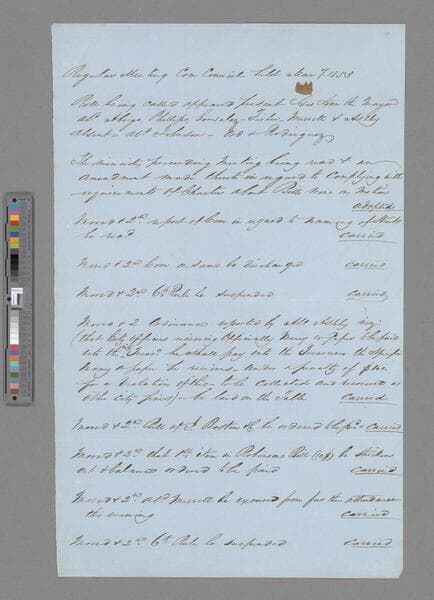 Regular Meeting Com Council held Mar 7 1853
Roll being called appeared present His Hon the Mayor
Ald Phillips Gonzalez Fisher Merrell & Ashby
Absent Ald Johnson & Rodinguez
The minutes preceeding Meeting being read & an
amendment made thereto in regard to complying with
requirements of Charter about Bills
adopted
Moved & 2d report of Com in regard to naming of streets
be read carried
Moved & 2d Com on same be discharged carried
Moved & 2d 6th Rule be suspended carried
Moved & 2 Ordinance reported by Ald Ashby
that City officers receiving officially Money or paper to be paid
into the Treasy he shall pay into the Treasurer the
Money or paper he receives under a penalty of
for a violation of this to be collected and recovered as
other City fines be laid on the Table carried
Moved & 2d Bill of be ordered to be pd carried
Moved & 2d that 1st item in Robinsons Bill be stricken
out & balance ordered to be paid carried
Moved & 2d Ald Merrell be excused from further attendance
this evening carried
Moved & 2d 6th Rule be suspended carried